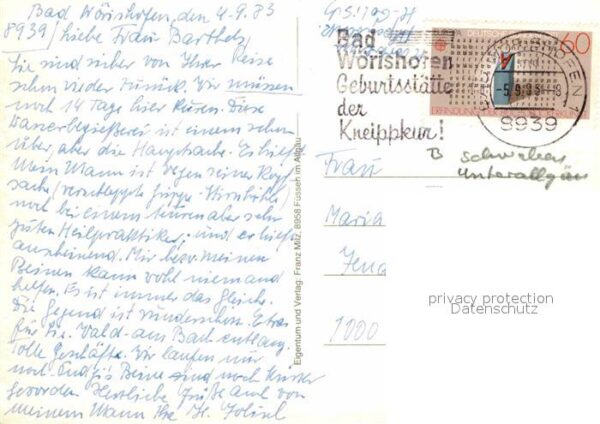 Bad Wörishofen, den 4.9.83
8939) Liebe Frau Barthels,
Sie sind sicher von Ihrer Reise
schon wieder zurück. Wir müssen
noch 14 Tage hier kuren. Diese
Wasserbegießerei ist einem schon
über, aber die Hauptsache. Es hilft
Mein Mann ist wegen seiner Kopf
sache (verschleppte Grippe
noch bei einem teuren aber sehr
guten Heilpraktiker, und er hilft
anscheinend. Mir bei meinen
Beinen kann wohl niemand
helfen. Es ist immer das Gleiche.
Die Gegend ist wunderschön. Etwas
für Sie. Wald- am Bach entlang.
Tolle Geschäfte. Wir laufen nur
noch. Beine sind noch
geworden Herzliche Grüße auch von
meinem Mann Ihre H.
Eigentum und Verlag: Franz Milz, 8958 Füssen im Allgäu
Bad
Wörishofen
Geburtsstätte
der
Kneippkur!
DEUTSCHE
60
BAD WÖRISHOFEN 1
-5.9.83-8
8939
B Schwaben,
Unterallgäu
Frau
Maria
Jena
1000
privacy protection
Datenschutz